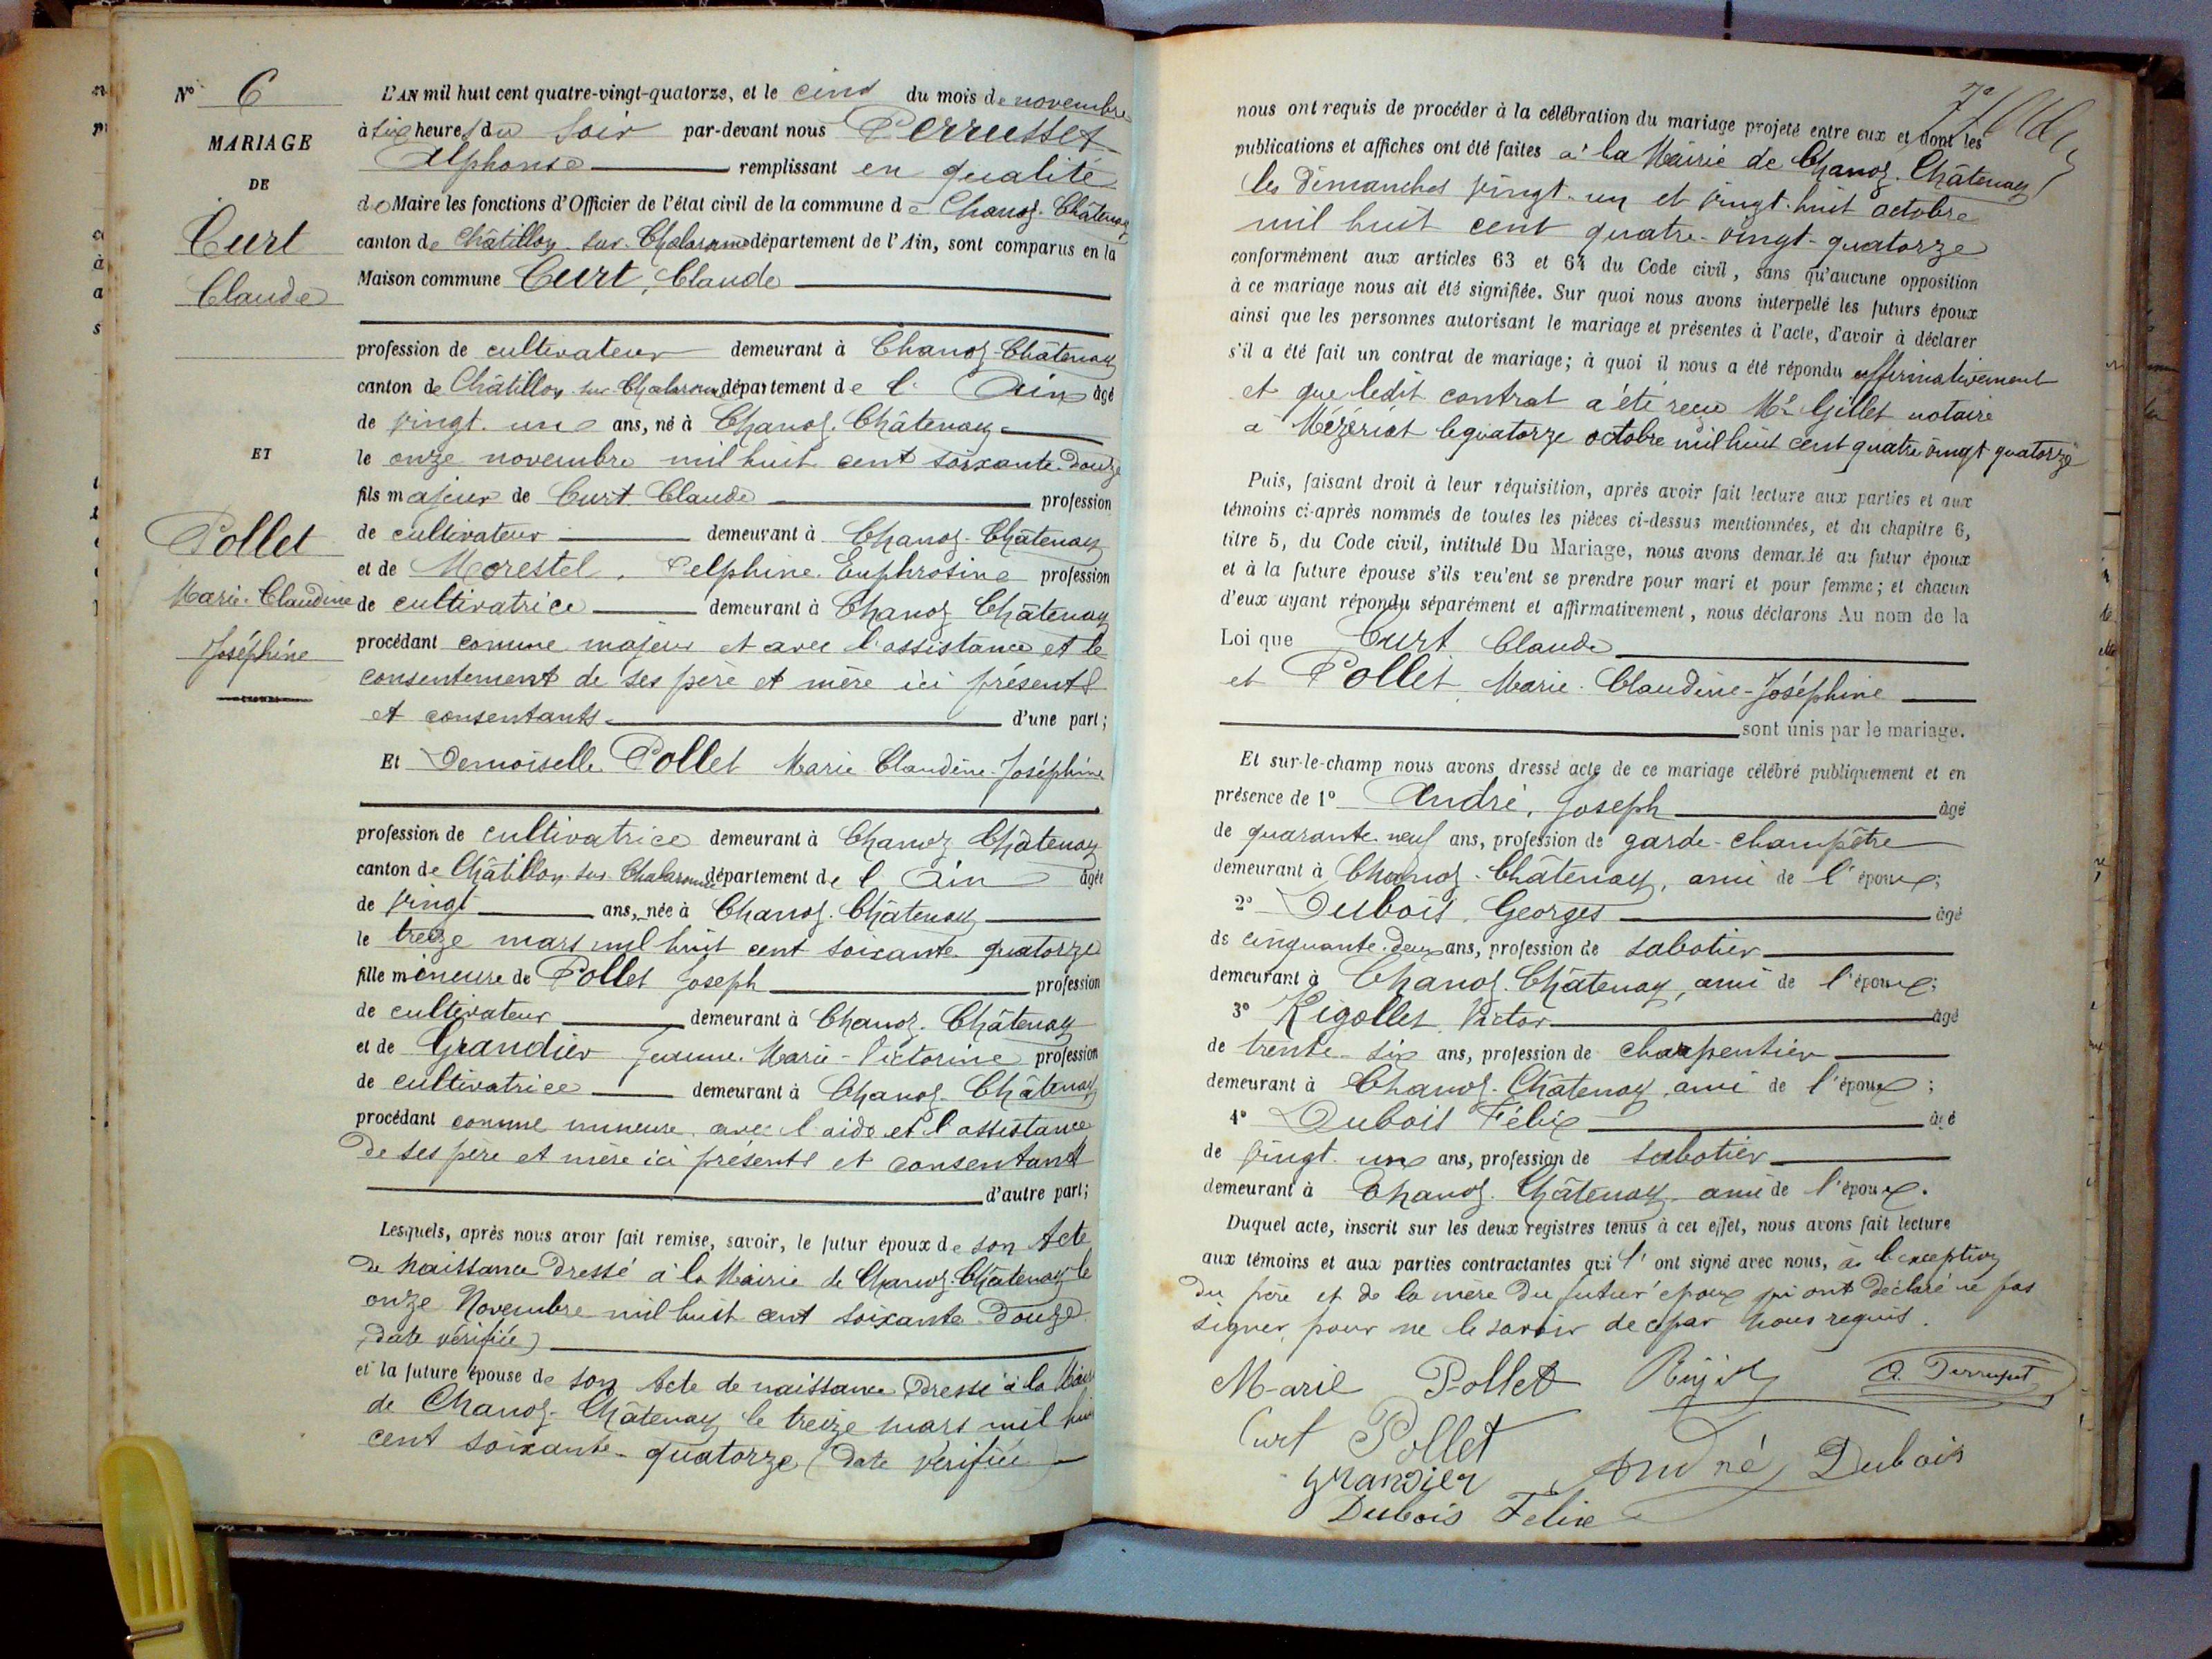 N° 6
MARIAGE
DE
Curt
Claude
ET
Pollet
Marie-Claudine
Joséphine
L'AN mil huit cent quatre-vingt-quatorze, et le cinq du mois de novembre
à six heures du soir par-devant nous Perrusset
Alphonse remplissant en qualité
de Maire les fonctions d'Officier de l'état civil de la commune de Chanoz-Châtenay
canton de Châtillon-sur-Chalaronne département de l'Ain, sont comparus en la
Maison commune Curt, Claude
profession de cultivateur demeurant à Chanoz-Châtenay
canton de Châtillon-sur-Chalaronne département de l'Ain âgé
de vingt-un ans, né à Chanoz-Châtenay
le onze novembre mil huit cent soixante-douze
fils majeur de Curt Claude profession
de cultivateur demeurant à Chanoz-Châtenay
et de Morestel, Delphine Euphrosine profession
de cultivatrice demeurant à Chanoz Châtenay
procédant comme majeur et avec l'assistance et le
consentement de ses père et mère ici présents
et consentants d'une part;
Et Demoiselle Pollet Marie Claudine-Joséphine
profession de cultivatrice demeurant à Chanoz Châtenay
canton de Châtillon-sur-Chalaronne département de l'Ain âgée
de vingt ans, née à Chanoz-Châtenay
le treize mars mil huit cent soixante-quatorze
fille mineure de Pollet Joseph profession
de cultivateur demeurant à Chanoz-Châtenay
et de Grandier Jeanne-Marie-Victorine profession
de cultivatrice demeurant à Chanoz-Châtenay
procédant comme mineure, avec l'aide et l'assistance
de ses père et mère ici présents et consentant
d'autre part;
Lesquels, après nous avoir fait remise, savoir, le futur époux de son Acte
de naissance dressé à la Mairie de Chanoz-Châtenay le
onze Novembre mil huit cent soixante-douze
(date vérifiée)
et la future épouse de son Acte de naissance dressé à la Mairie
de Chanoz-Châtenay le treize mars mil huit
cent soixante-quatorze (date vérifiée)
nous ont requis de procéder à la célébration du mariage projeté entre eux et dont les
publications et affiches ont été faites à la Mairie de Chanoz-Châtenay
les dimanches vingt-un et vingt-huit octobre
mil huit cent quatre-vingt-quatorze
conformément aux articles 63 et 64 du Code civil, sans qu'aucune opposition
à ce mariage nous ait été signifiée. Sur quoi nous avons interpellé les futurs époux
ainsi que les personnes autorisant le mariage et présentes à l'acte, d'avoir à déclarer
s'il a été fait un contrat de mariage; à quoi il nous a été répondu affirmativement
et que ledit contrat a été reçu Me Gillet notaire
à Mézériat le quatorze octobre mil huit cent quatre vingt quatorze
Puis, faisant droit à leur réquisition, après avoir fait lecture aux parties et aux
témoins ci-après nommés de toutes les pièces ci-dessus mentionnées, et du chapitre 6,
titre 5, du Code civil, intitulé Du Mariage, nous avons demandé au futur époux
et à la future épouse s'ils veulent se prendre pour mari et pour femme; et chacun
d'eux ayant répondu séparément et affirmativement, nous déclarons Au nom de la
Loi que Curt Claude
et Pollet, Marie-Claudine-Joséphine
sont unis par le mariage.
Et sur-le-champ nous avons dressé acte de ce mariage célébré publiquement et en
présence de 1° André, Joseph âgé
de quarante-neuf ans, profession de garde-champêtre
demeurant à Chanoz-Châtenay, ami de l'époux;
2° Dubois, Georges âgé
de cinquante-deux ans, profession de sabotier
demeurant à Chanoz-Châtenay, ami de l'époux;
3° Rigollet, Victor âgé
de trente-six ans, profession de charpentier
demeurant à Chanoz-Châtenay, ami de l'époux;
4° Dubois Félix âgé
de vingt-un ans, profession de sabotier
demeurant à Chanoz-Châtenay ami de l'époux.
Duquel acte, inscrit sur les deux registres tenus à cet effet, nous avons fait lecture
aux témoins et aux parties contractantes qui l'ont signé avec nous, à l'exception
du père et de la mère du futur époux qui ont déclaré ne pas
signer pour ne le savoir de ce par nous requis.
Marie Pollet A. Perrusset
Curt Pollet
grandier André Dubois
Dubois Felix